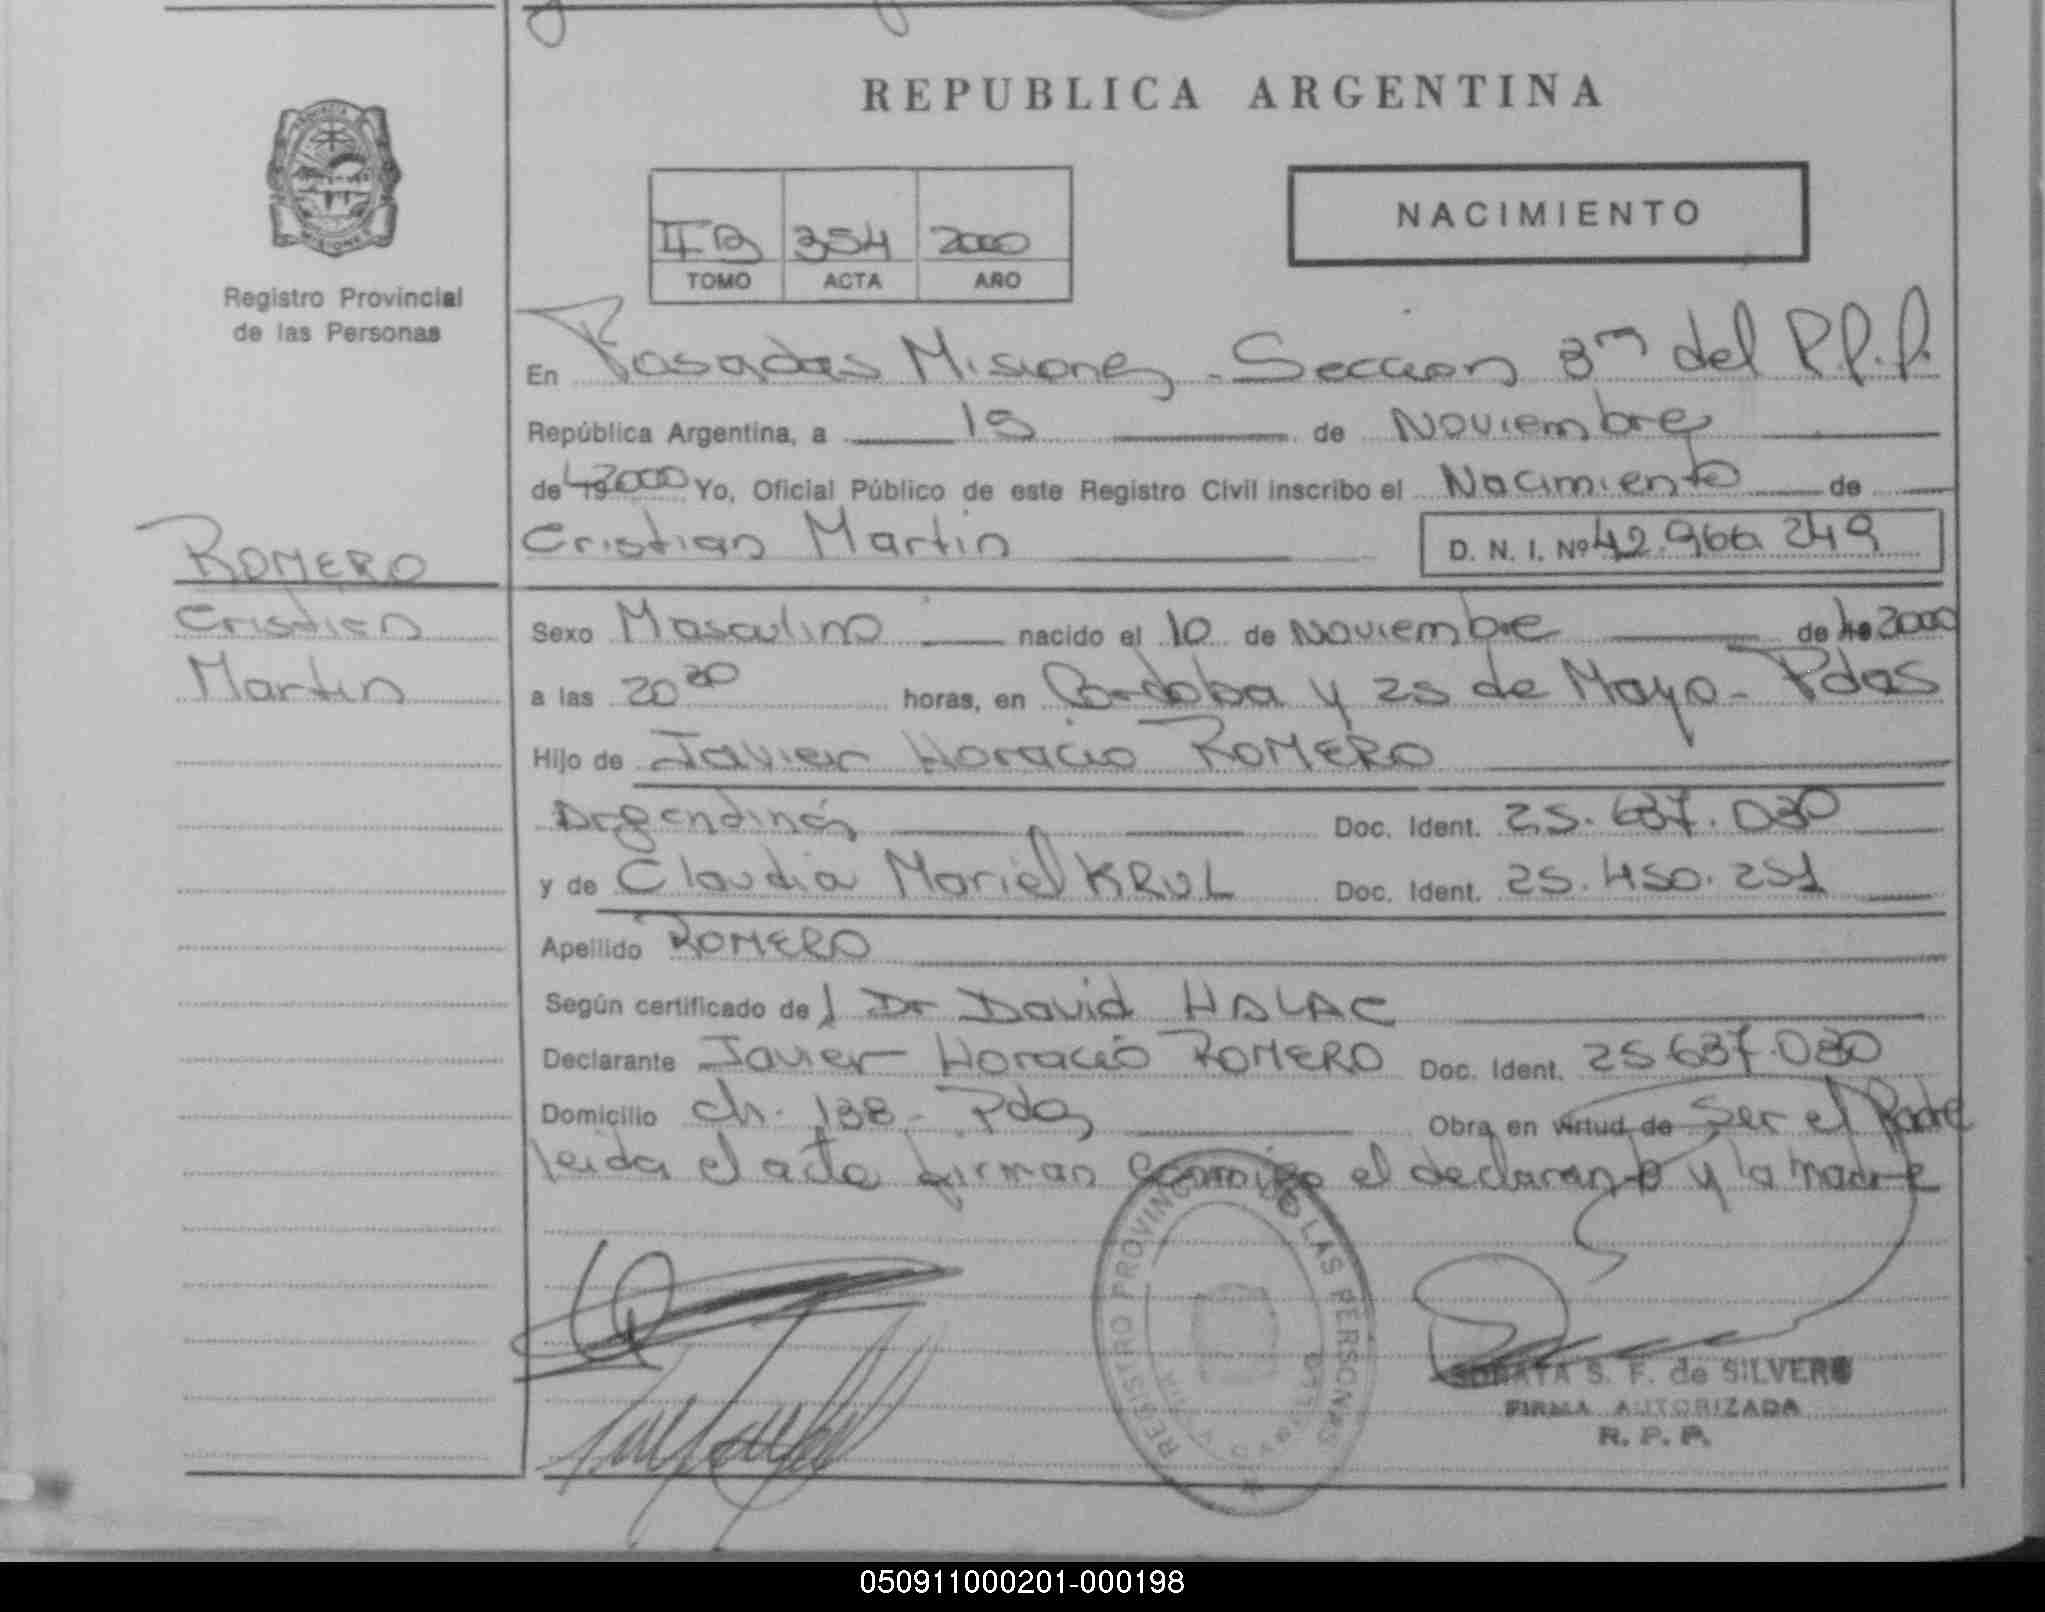 REPUBLICA ARGENTINA
NACIMIENTO
II B 354 2000
TOMO ACTA AÑO
Registro Provincial
de las Personas
En Posadas Misiones - Sección 3ra del R.P.P.
República Argentina, a 15 de Noviembre
de 19 2000 Yo, Oficial Público de este Registro Civil inscribo el Nacimiento de
Cristian Martin D. N. I. Nº 42.966.249
ROMERO
Cristian
Martin
Sexo Masculino nacido el 10 de Noviembre de 2000
a las 20 30 horas, en Cordoba y 25 de Mayo - Pdas
Hijo de Javier Horacio ROMERO
Argentinos Doc. Ident. 25.637.030
y de Claudia Mariel KRUL Doc. Ident. 25.450.251
Apellido ROMERO
Según certificado del Dr David HALAC
Declarante Javier Horacio ROMERO Doc. Ident. 25.637.030
Domicilio ch. 138 - Pdas Obra en virtud de Ser el Padre
leida el acta firman conmigo el declarante y la madre
REGISTRO PROVINCIAL DE LAS PERSONAS
S. F. de SILVERO
FIRMA AUTORIZADA
R. P. P.
050911000201-000198